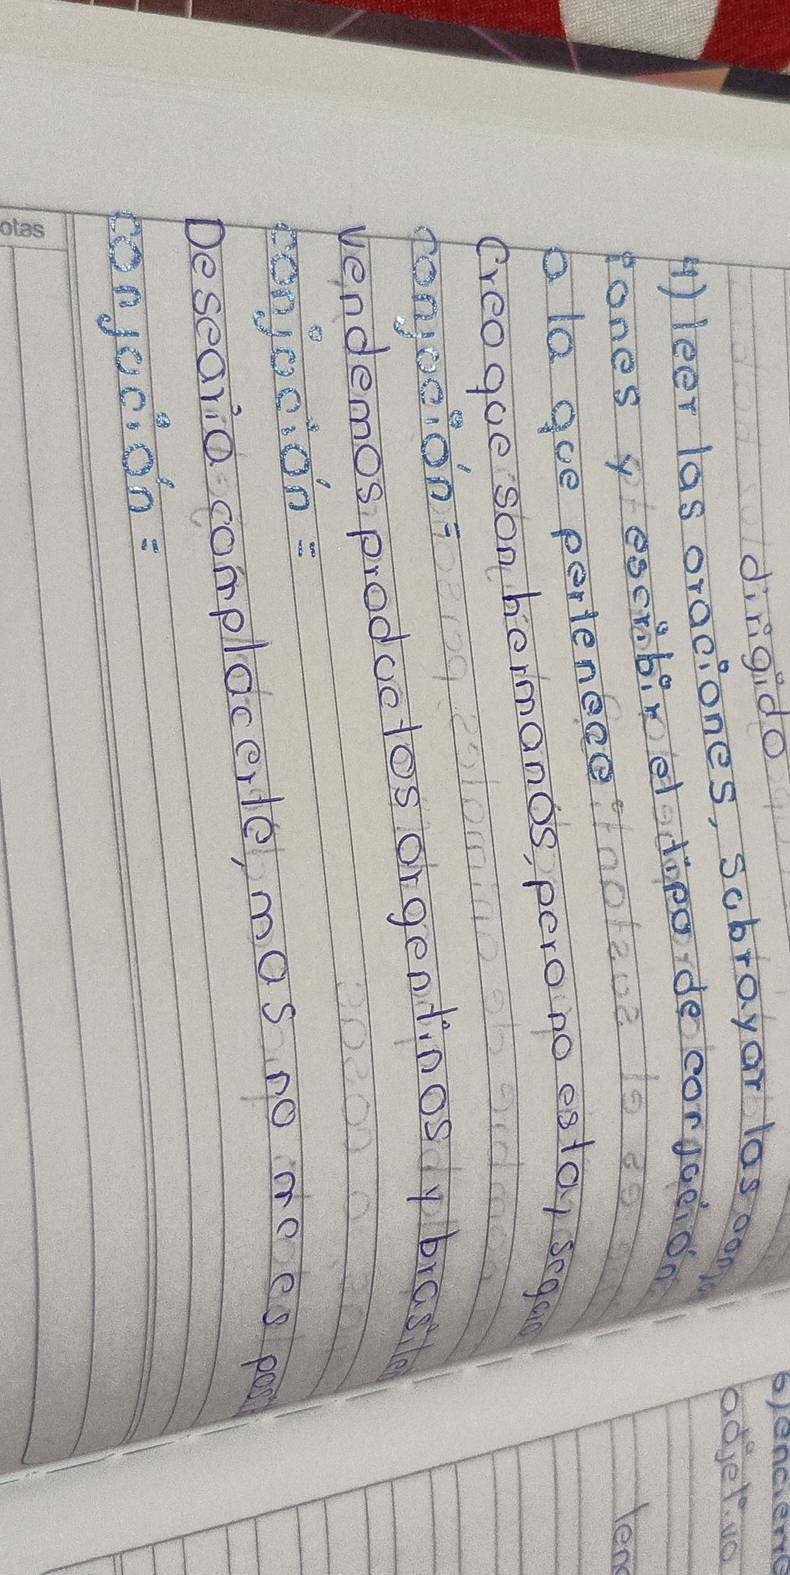 dirigido
4) leer las oraciones, subrayar las conju
iones y escribir el tipo de conjución
a la que pertenece:
Creo que son hermanos, pero no estoy seguro
conjución=
Vendemos productos argentinos y brasile
conjución=
Desearia complacerle, mas no me es posi
conjución=
otas
b) encierre
adjetivo
len